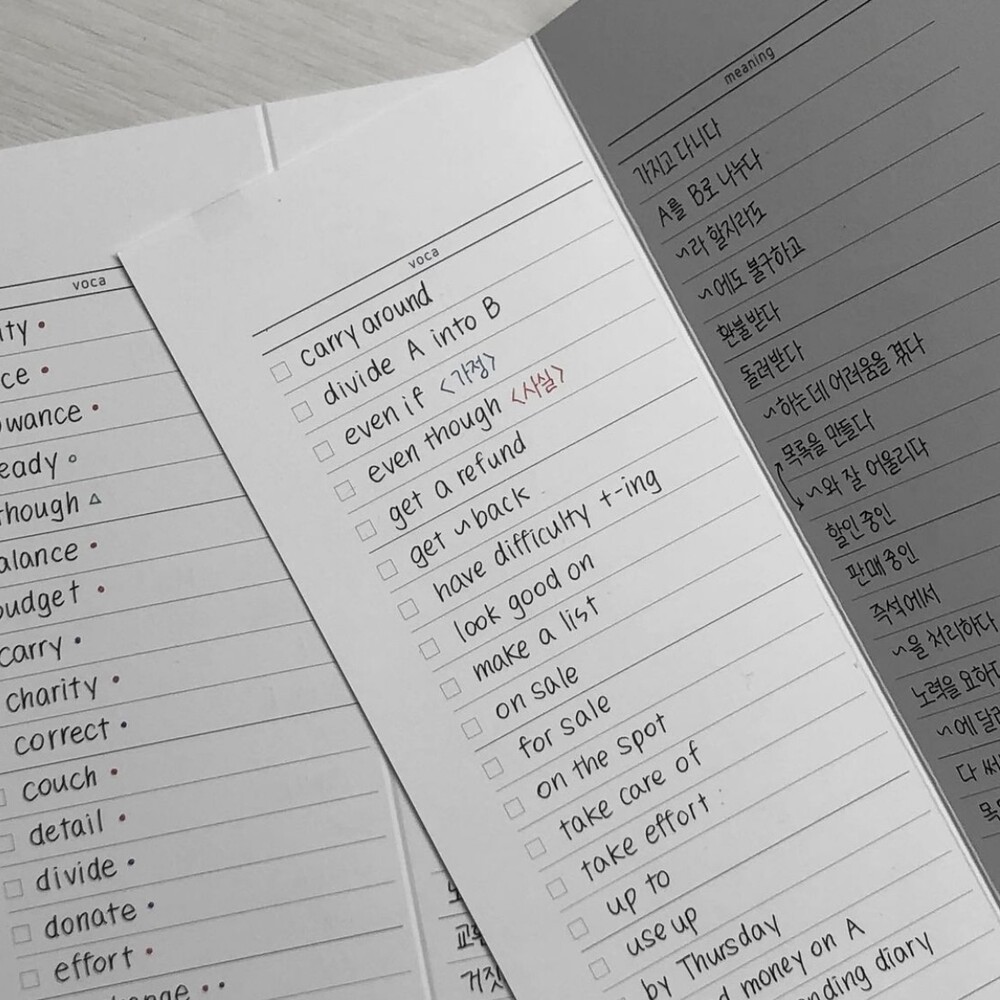 voca
carry
charity
correct
couch
detail
divide
donate
effort
voca
carry around
divide A into B
even if <가정>
even though <사실>
get a refund
get ~ back
have difficulty +-ing
look good on
make a list
on sale
for sale
on the spot
take care of
take effort
up to
use up
by Thursday
money on A
diary
meaning
가지고 다니다
A를 B로 나누다
~라 할지라도
~에도 불구하고
환불받다
돌려받다
~하는데 어려움을 겪다
목록을 만들다
~와 잘 어울리다
할인 중인
판매 중인
즉석에서
~을 처리하다
노력을
~에
다